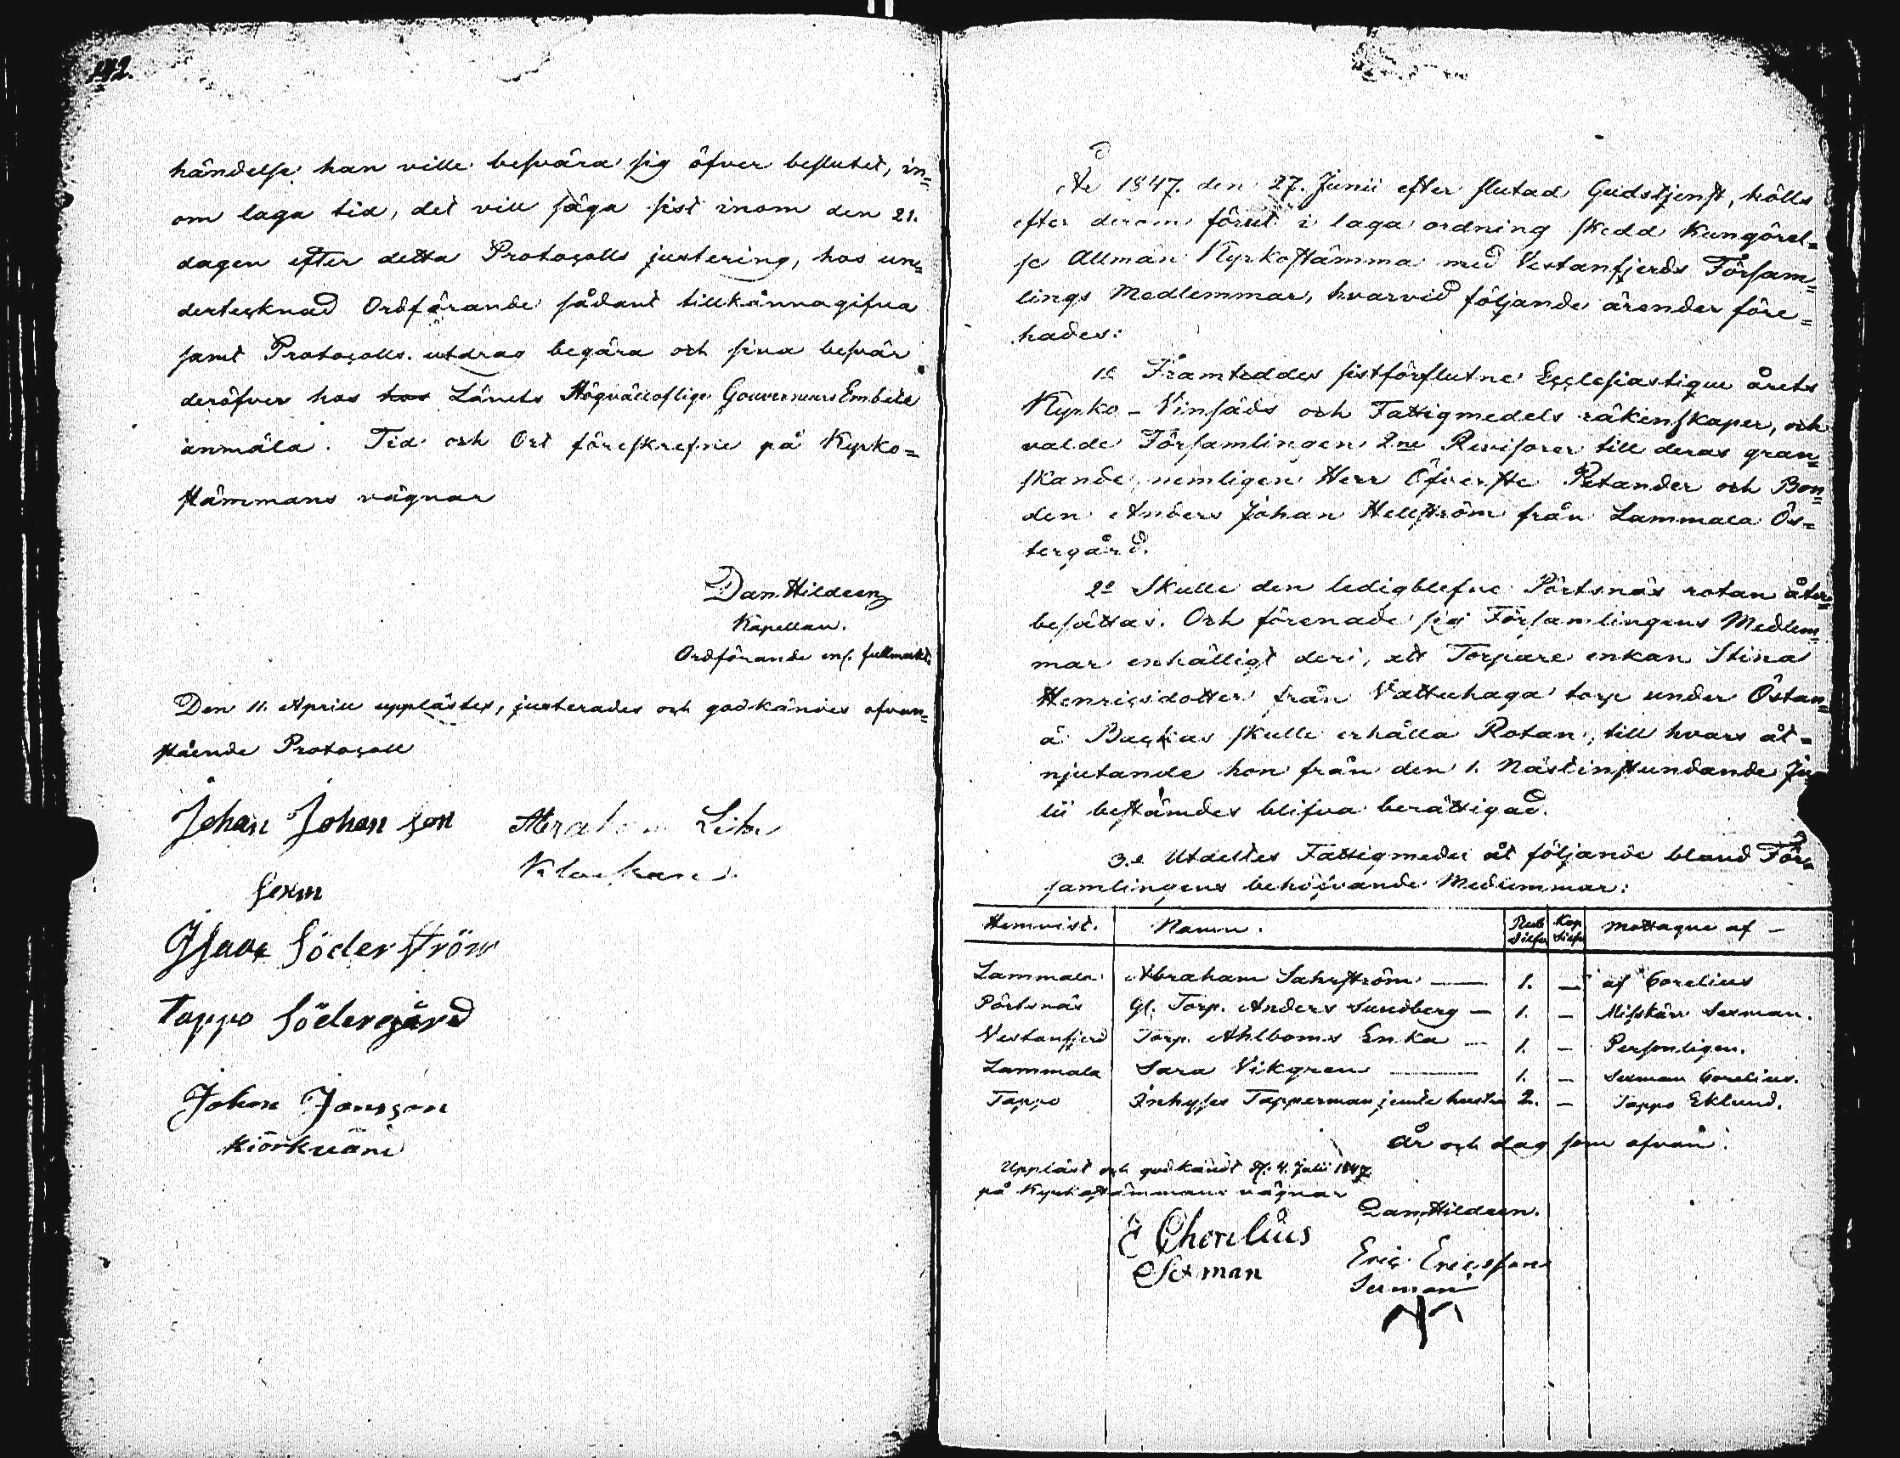 142.
händelse han ville besvära sig öfver beslutet, in=
om laga tid, det vill säga sist inom den 21.
dagen efter detta Protocolls justering, hos un=
dertecknad Ordförande sådant tillkännagifva
samt Protocolls utdrag begära och sina besvär
deröfver hos hos Länets Högvällofliga Gouverneurs Embete
anmäla. Tid och Ort föreskrefne på Kyrko=
stämmans vägnar
Dan. Hildeen
Kapellan.
Ordförande enl. fullmakt.
Den 11. Aprill upplästes, justerades och godkändes ofvan=
stående Protocoll
Johan Johan son
Sexm
Abraham
Klockare.
Söderström
Tappo Södergård
Johan Jansson
År 1847. den 27. Junii efter slutad Gudstjenst, hölls
efter derom förut i laga ordning skedd kungörel=
se Allmän Kyrkostämma med Vestanfjerds Försam=
lings Medlemmar, hvarvid följande ärender före=
hades:
1o Framteddes sistförflutne Ecclesiastique årets
Kyrko- Vinsäds och Fattigmedels räkenskaper, och
valde Församlingen 2ne Revisorer till deras gran=
skande, nemligen Herr Öfverste Petander och Bon=
den Anders Johan Hellström från Lammala Ös=
tergård.
2o Skulle den ledigblefne Pörtsnäs rotan åter=
besättas. Och förenade sig Församlingens Medlem=
mar enhälligt deri, att Torpare enkan Stina
Henricsdotter från Vattuhaga torp under Östan=
å Backas skulle erhålla Rotan, till hvars åt=
njutande hon från den 1. Nästinstundande Ju=
lii bestämdes blifva berättigad.
3o Utdeltes Fattigmedel åt följande bland För=
samlingens behöfvande Medlemmar:
Hemvist. Namn. Rub Silfr Kop Silfr Mottagne af —
Lammala Abraham Sahlström — 1. — af Corelius
Pörtsnäs Gl. Torp. Anders Sundberg — 1. — Misskärr Sexman.
Vestanfjerd Torp. Ahlboms Enka — 1. — Personligen.
Lammala Sara Vikgren — 1. — Sexman Corelius.
Tappo Inhyses Tapperman jemte hustru 2. — Tappo Eklund.
År och dag som ofvan.
Uppläst och godkändt d. 4. Juli 1847
på Kyrkostämmans vägnar
Dan. Hildeen.
E Chorelius
Sexman
Eric Ericsson
Sexman